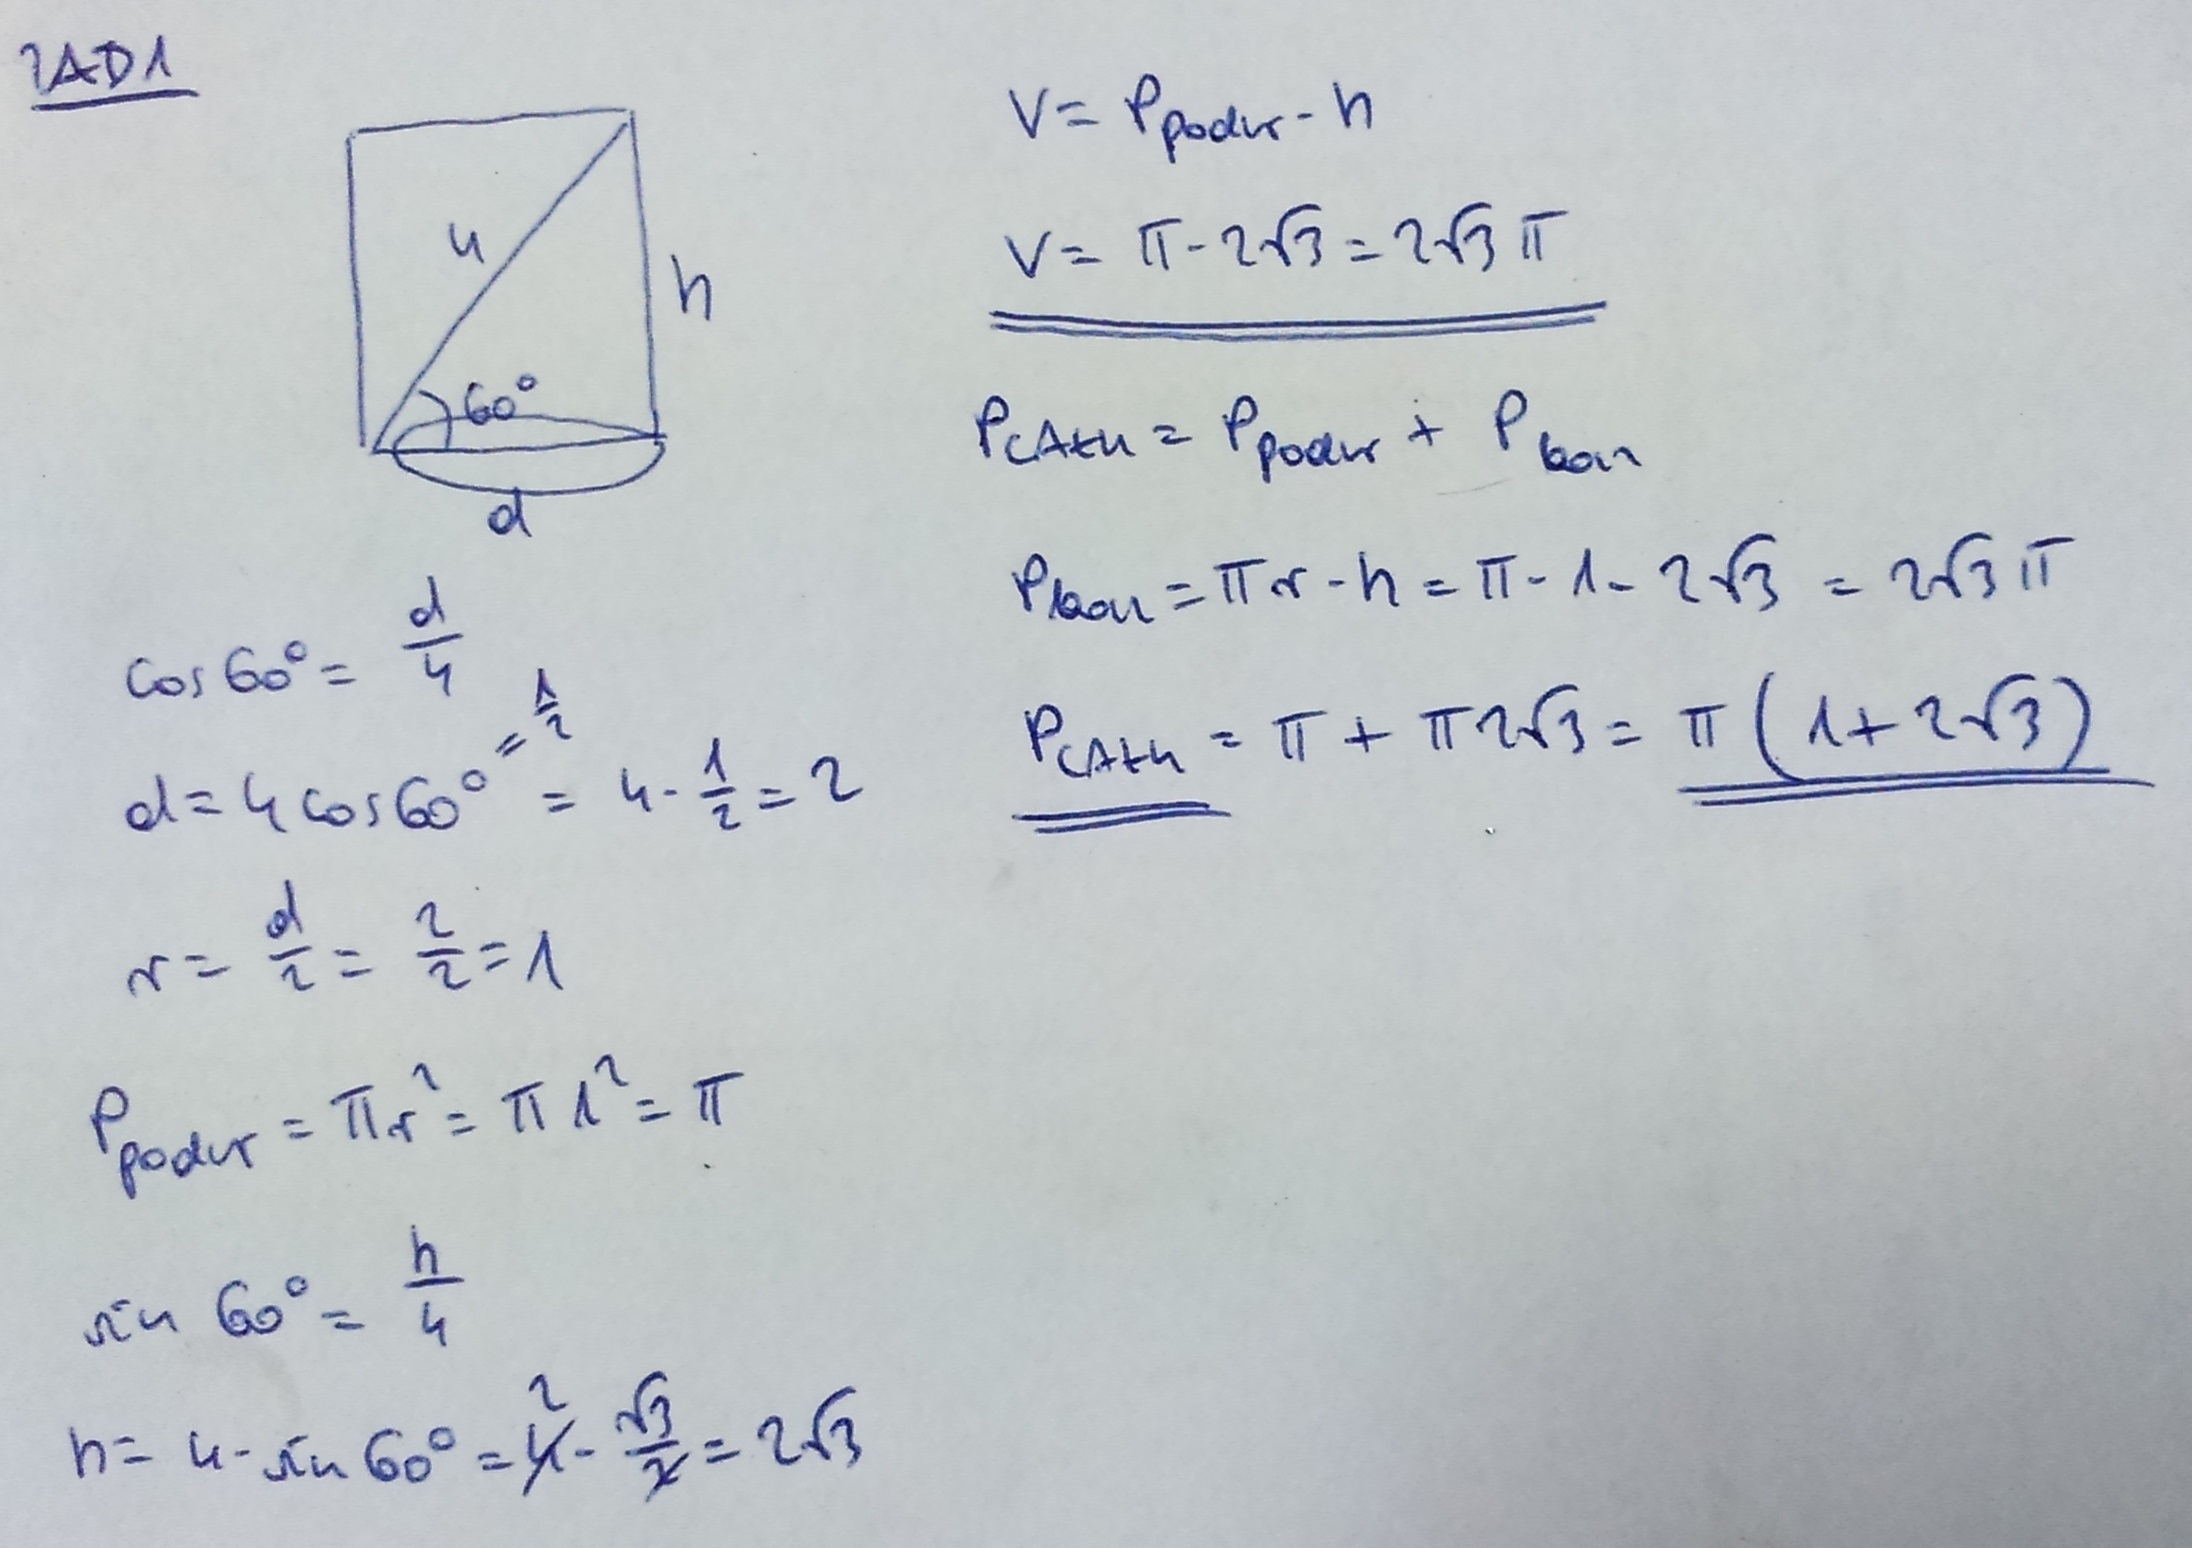 ZAD1
4
h
60°
d
cos60° = d/4
d = 4cos60° = 1/2 = 4 · 1/2 = 2
r = d/2 = 2/2 = 1
P podst = πr² = π1² = π
sin 60° = h/4
h = 4 · sin 60° = 4 2 · √3/2 = 2√3
V = P podst · h
V = π · 2√3 = 2√3 π
P CAŁK = P podst + P bocz
P bocz = πr · h = π · 1 · 2√3 = 2√3 π
P CAŁK = π + π2√3 = π(1 + 2√3)